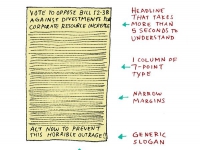 VOTE TO OPPOSE BILL 12-38
AGAINST DIVESTMENTS FOR
CORPORATE RESOLUBLE INCREASE
ACT NOW TO PREVENT
THIS HORRIBLE OUTRAGE!
HEADLINE
THAT TAKES
MORE THAN
5 SECONDS TO
UNDERSTAND
1 COLUMN OF
7-POINT
TYPE
NARROW
MARGINS
GENERIC
SLOGAN